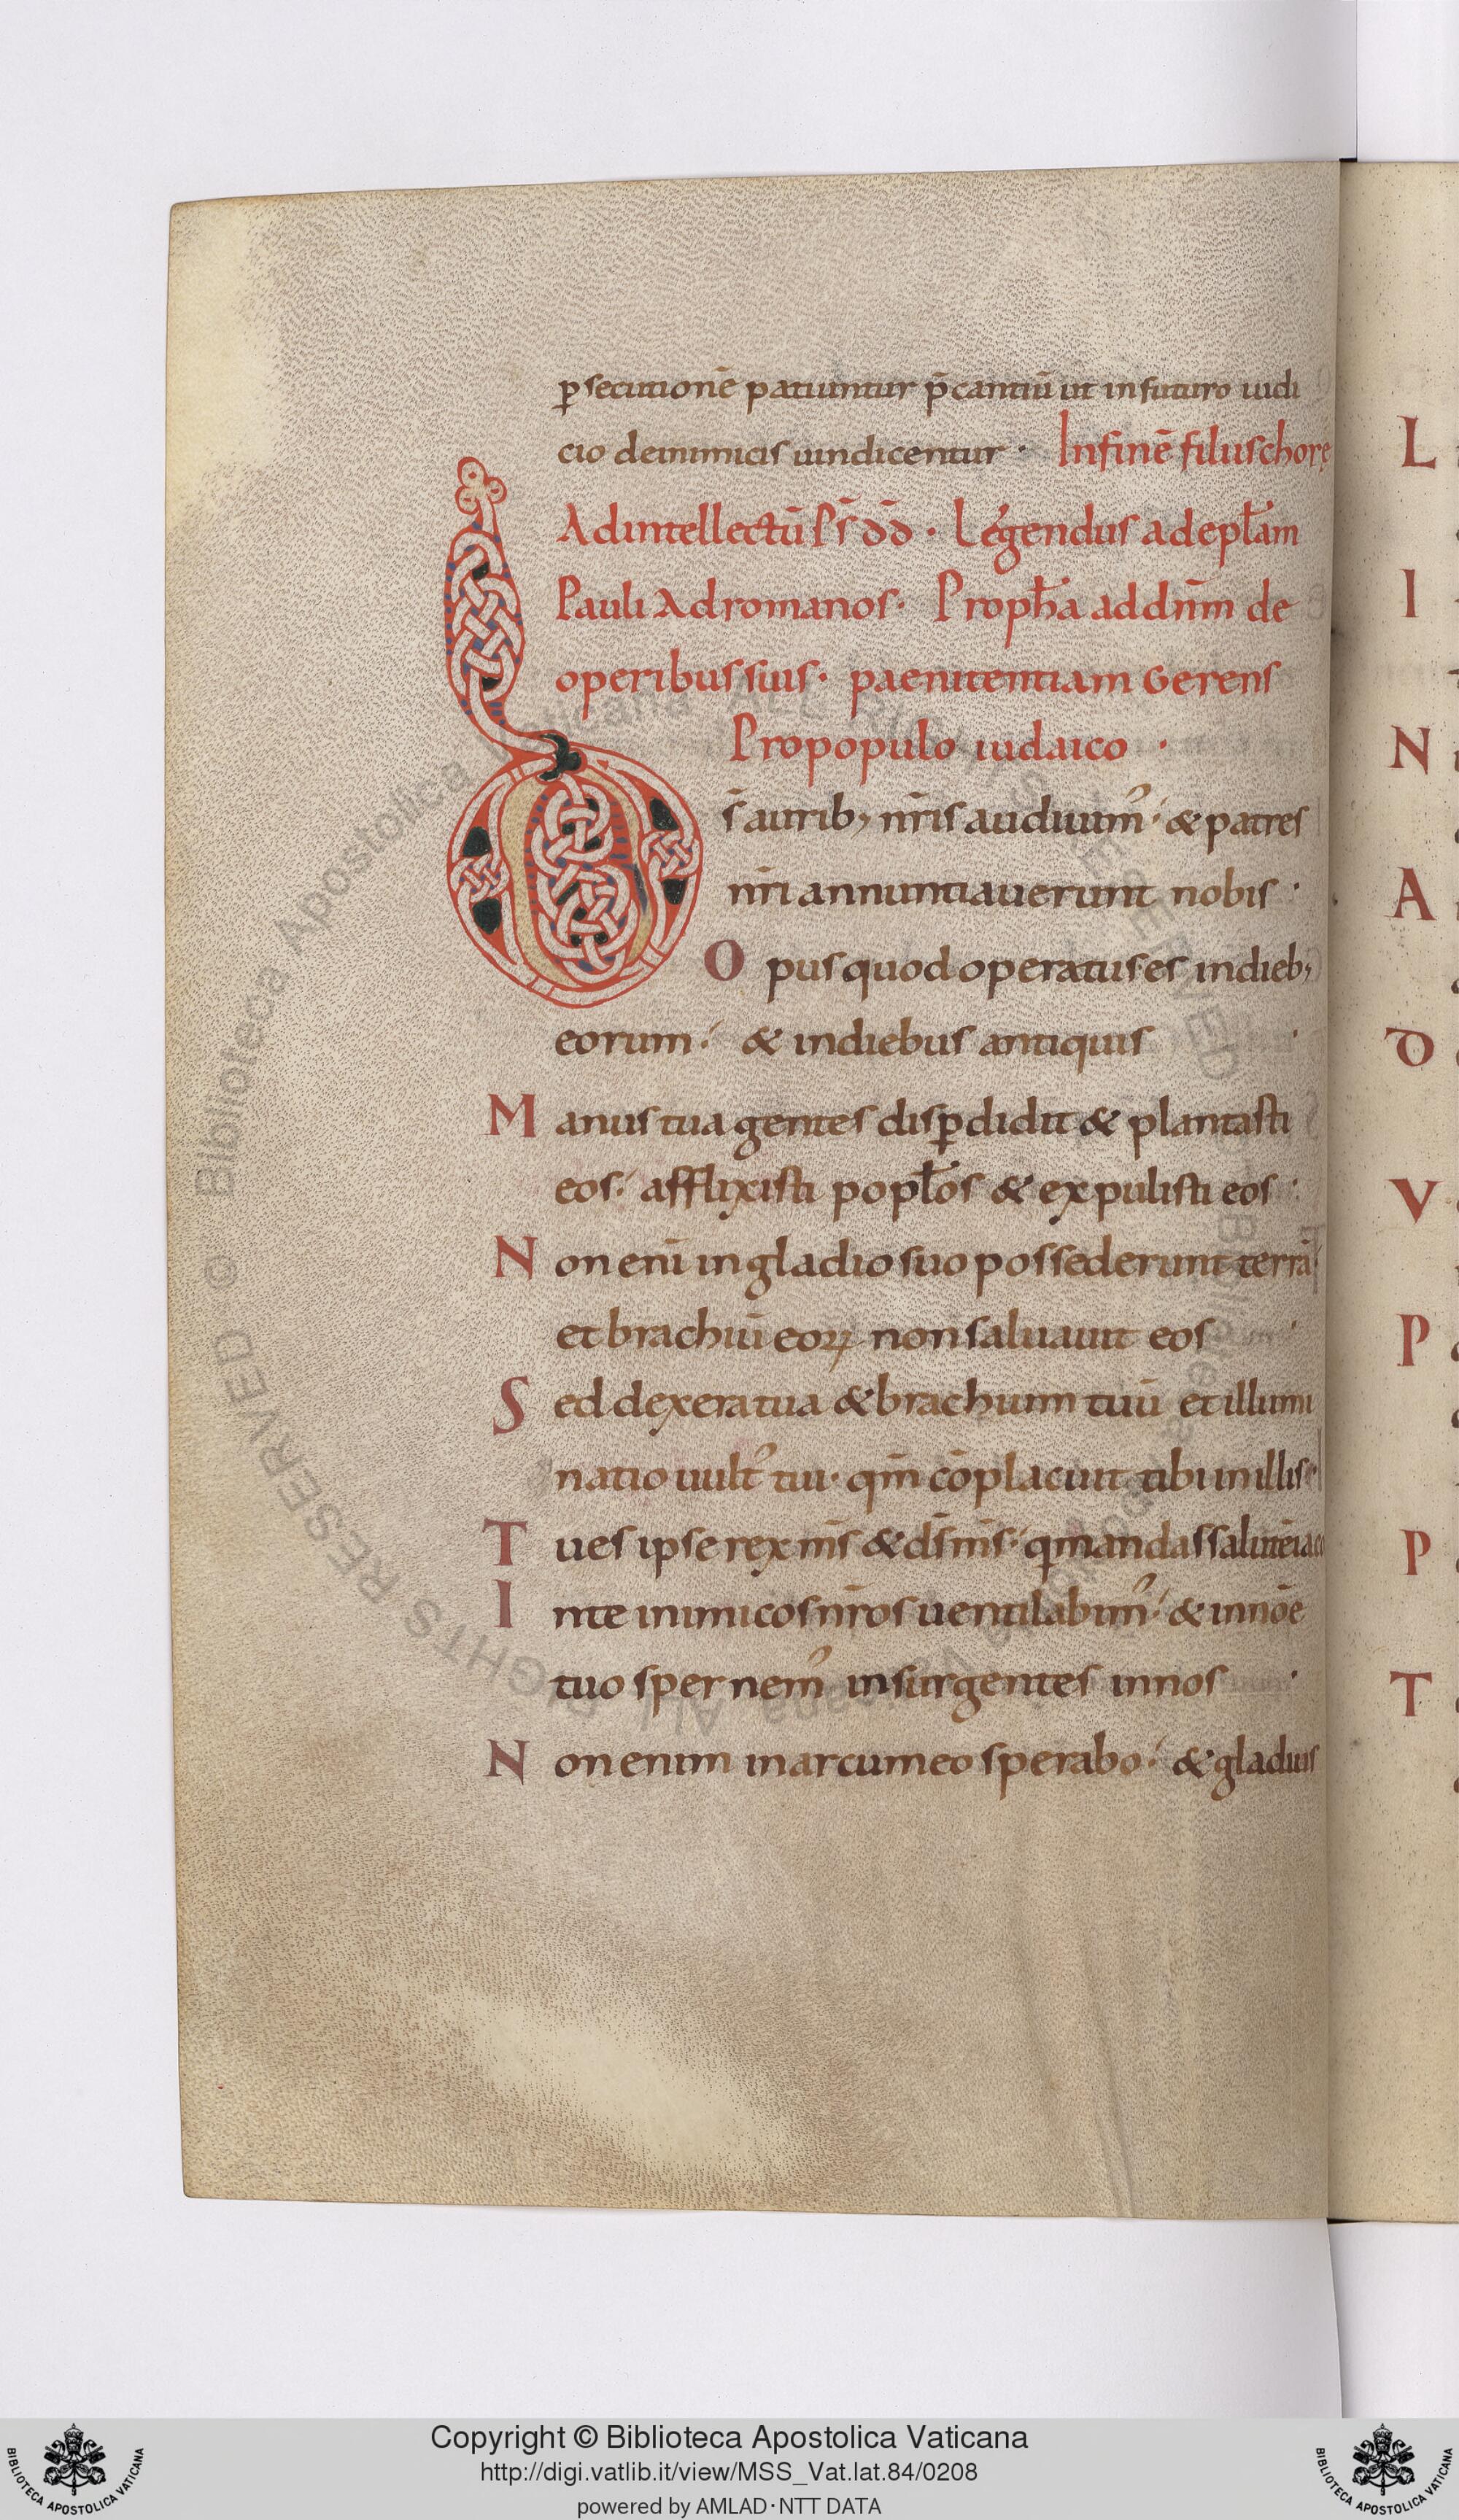 p̱secutionē patiuntur p̄cantiū ut in futuro iudi
cio deinimicis uindicentur · Infinē filiis chorę
Ad intellectū ps̄ dd̄ · Legendus ad epl̄am
Pauli Ad romanos · Proph̄a ad dn̄m de
operibus suis · paenitentiam Gerens
Pro populo iudaico ·
D s̄ aurib; nr̄is audiuim᾽ & patres
nr̄i annuntiauerunt nobis ·
O pus quod operatus es indieb;
eorum · & indiebus antiquis ·
M anus tua gentes disp̱didit & plantasti
eos · afflixisti popl̄os & expulisti eos ·
N on eni̅ in gladio suo possederunt terrā
et brachiū eoꝝ non saluauit eos ·
S ed dexera tua & brachium tuū et illumi
natio uult᾽ tui · qm̄ cōplacuit tibi inillis ·
T u es ipse rex ms̄ & ds̄ ms̄ · q mandas salutē iaco
I nte inimicos nr̄os uentilabim᾽ · & innōe
tuo spernem᾽ insurgentes innos ·
N on enim in arcu meo sperabo · & gladius
L
I
N
A
D
V
P
P
T
Biblioteca Apostolica Vaticana ALL RIGHTS RESERVED ©
Copyright © Biblioteca Apostolica Vaticana
http://digi.vatlib.it/view/MSS_Vat.lat.84/0208
powered by AMLAD·NTT DATA
BIBLIOTECA APOSTOLICA VATICANA
BIBLIOTECA APOSTOLICA VATICANA